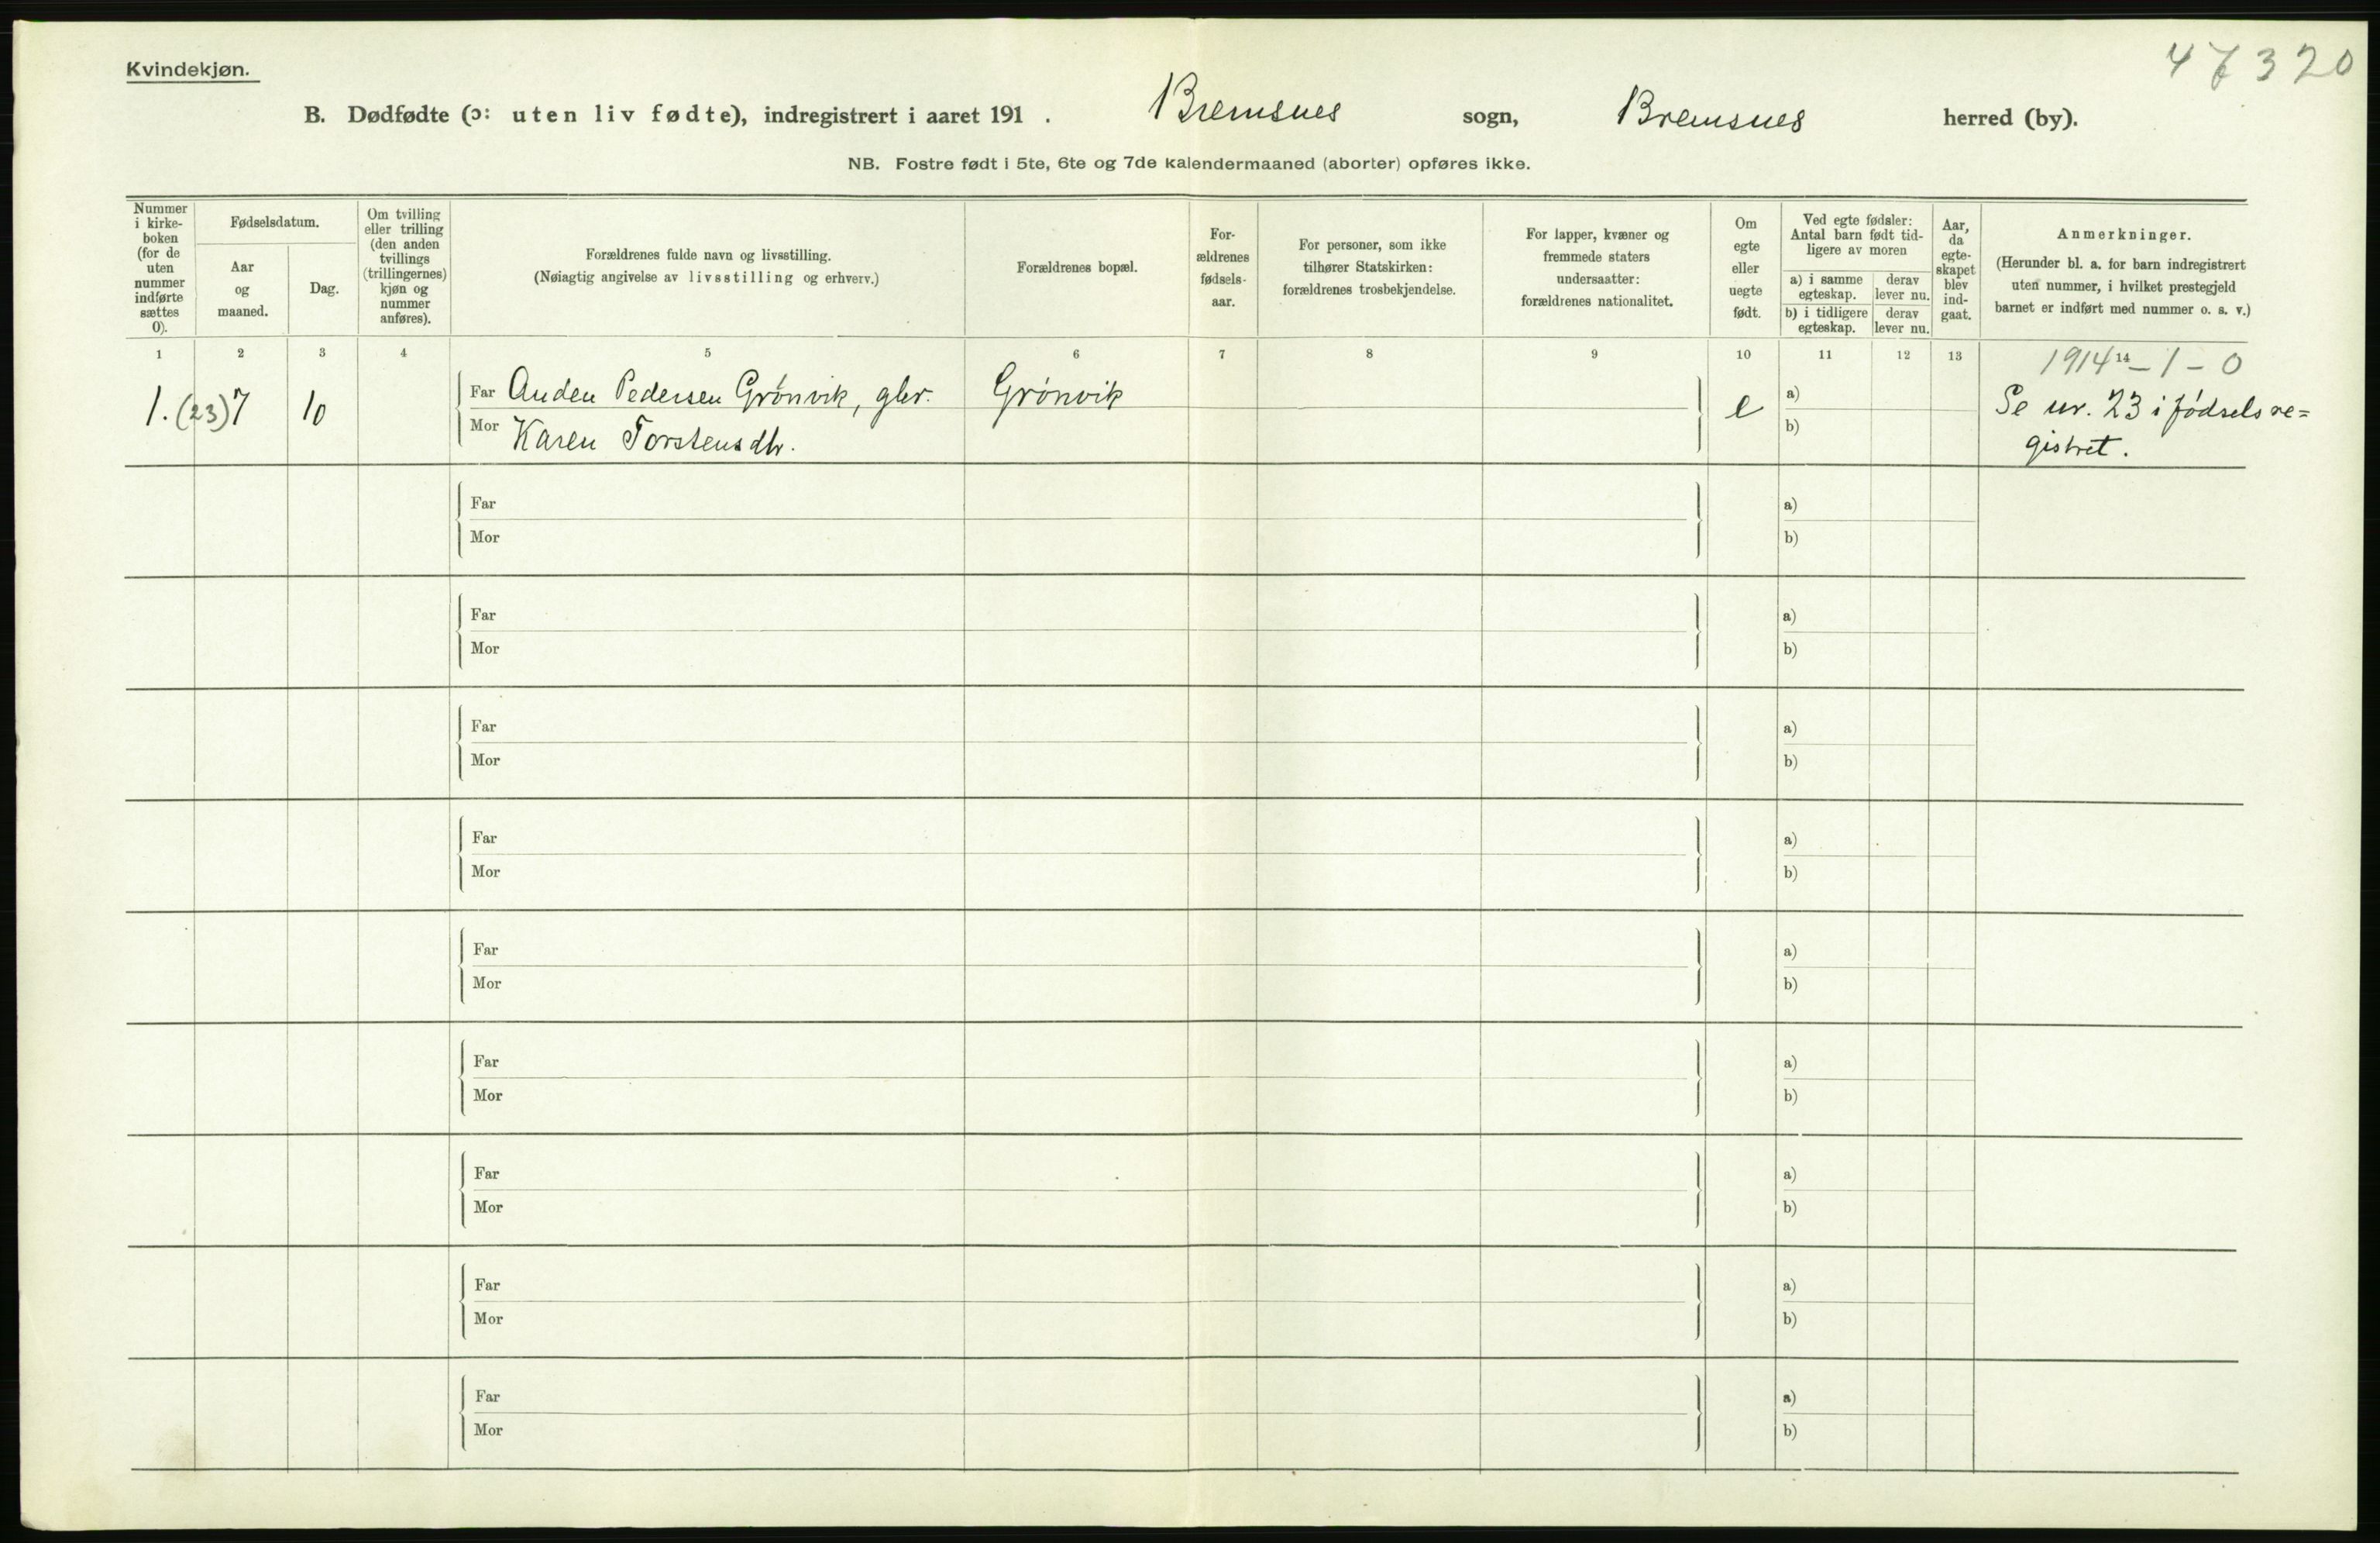 Kvindekjøn.
47320
B. Dødfødte (ɔ: uten liv fødte), indregistrert i aaret 191 . Bremsnes sogn, Bremsnes herred (by).
NB. Fostre født i 5te, 6te og 7de kalendermaaned (aborter) opføres ikke.
Nummer
i kirke-
boken
(for de
uten
nummer
indførte
sættes
0).
Fødselsdatum.
Aar
og
maaned.
Dag.
Om tvilling
eller trilling
(den anden
tvillings
(trillingernes)
kjøn og
nummer
anføres).
Forældrenes fulde navn og livsstilling.
(Nøiagtig angivelse av livsstilling og erhverv.)
Forældrenes bopæl.
For-
ældrenes
fødsels-
aar.
For personer, som ikke
tilhører Statskirken:
forældrenes trosbekjendelse.
For lapper, kvæner og
fremmede staters
undersaatter:
forældrenes nationalitet.
Om
egte
eller
uegte
født.
Ved egte fødsler:
Antal barn født tid-
ligere av moren
a) i samme
egteskap.
derav
lever nu.
b) i tidligere
egteskap.
derav
lever nu.
Aar,
da
egte-
skapet
blev
ind-
gaat.
Anmerkninger.
(Herunder bl. a. for barn indregistrert
uten nummer, i hvilket prestegjeld
barnet er indført med nummer o. s. v.)
1 2 3 4 5 6 7 8 9 10 11 12 13 14
1914 – 1 – 0
1. (23) 7 10
Far Anden Pedersen Grønvik, gbr. Grønvik
Mor Karen Torstensdtr.
e
a)
b)
Se nr. 23 i fødselsre=
gistret.
Far a)
Mor b)
Far a)
Mor b)
Far a)
Mor b)
Far a)
Mor b)
Far a)
Mor b)
Far a)
Mor b)
Far a)
Mor b)
Far a)
Mor b)
Far a)
Mor b)